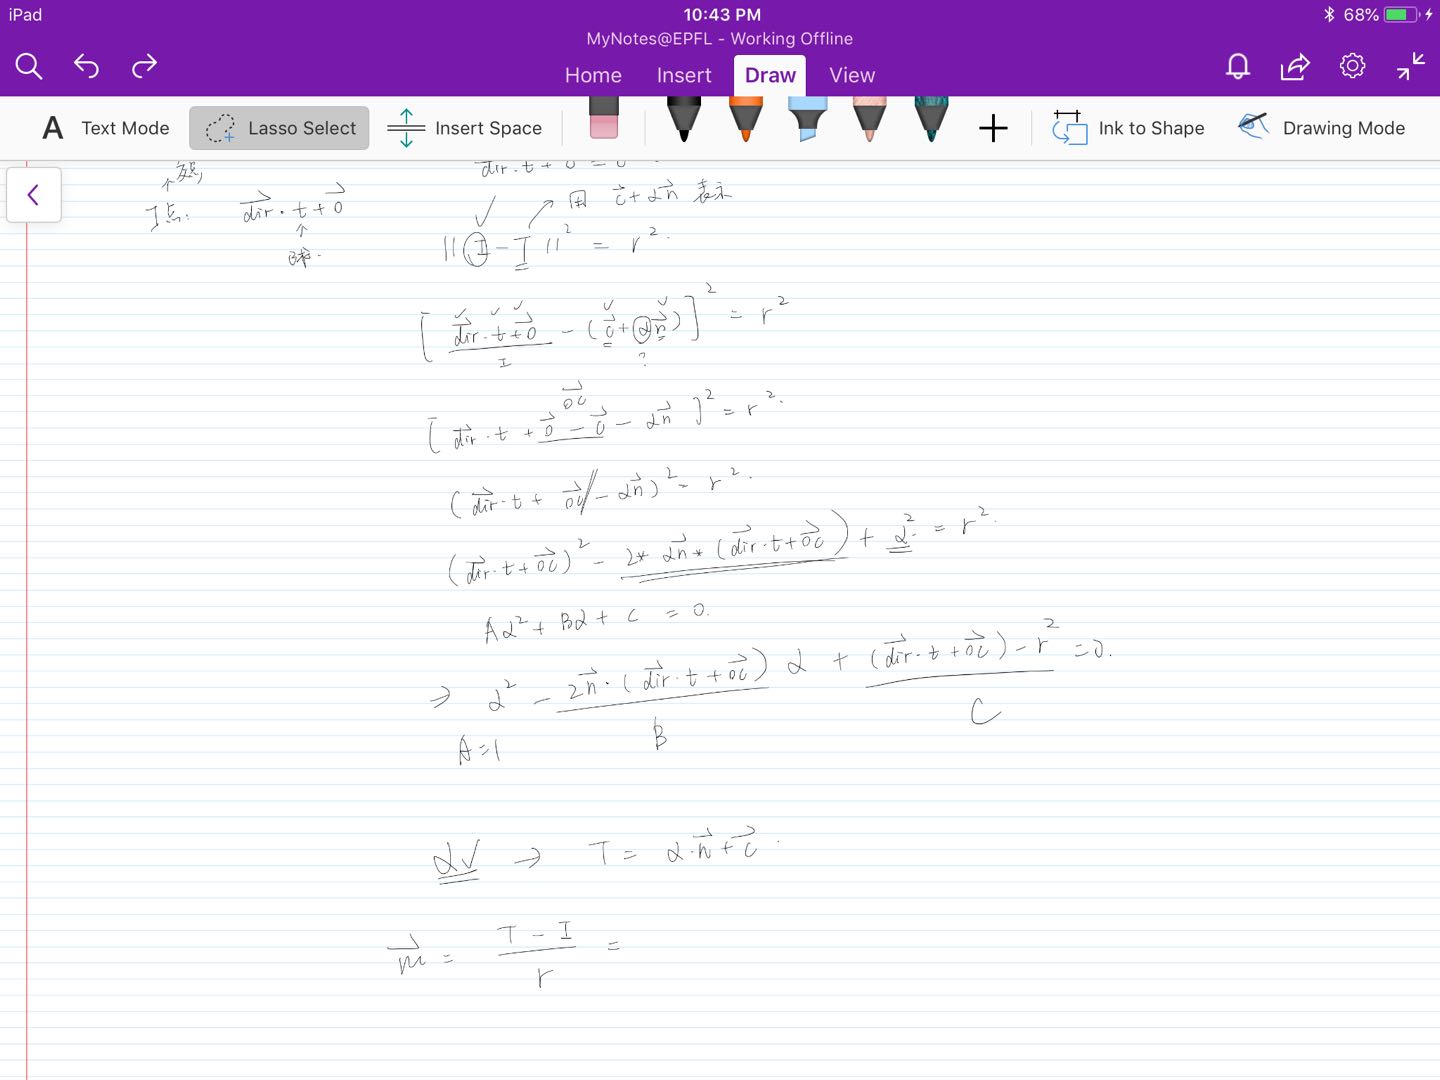 iPad 10:43 PM 68%
MyNotes@EPFL - Working Offline
Home Insert Draw View
A Text Mode Lasso Select Insert Space Ink to Shape Drawing Mode
dir·t + 0 = 0
点: dir·t + 0
用 c + αn 表示
||I - T||² = r².
[dir·t + 0 - (c + αn)]² = r²
I ?
OC
[dir·t + 0 - c - αn]² = r².
(dir·t + OC - αn)² = r².
(dir·t + OC)² - 2* αn * (dir·t + OC) + α² = r².
Aα² + Bα + C = 0.
⇒ α² - 2n·(dir·t + OC) α + (dir·t + OC) - r² = 0.
A = 1 B C
α√ → T = α·n + c.
m = (T - I) / r =